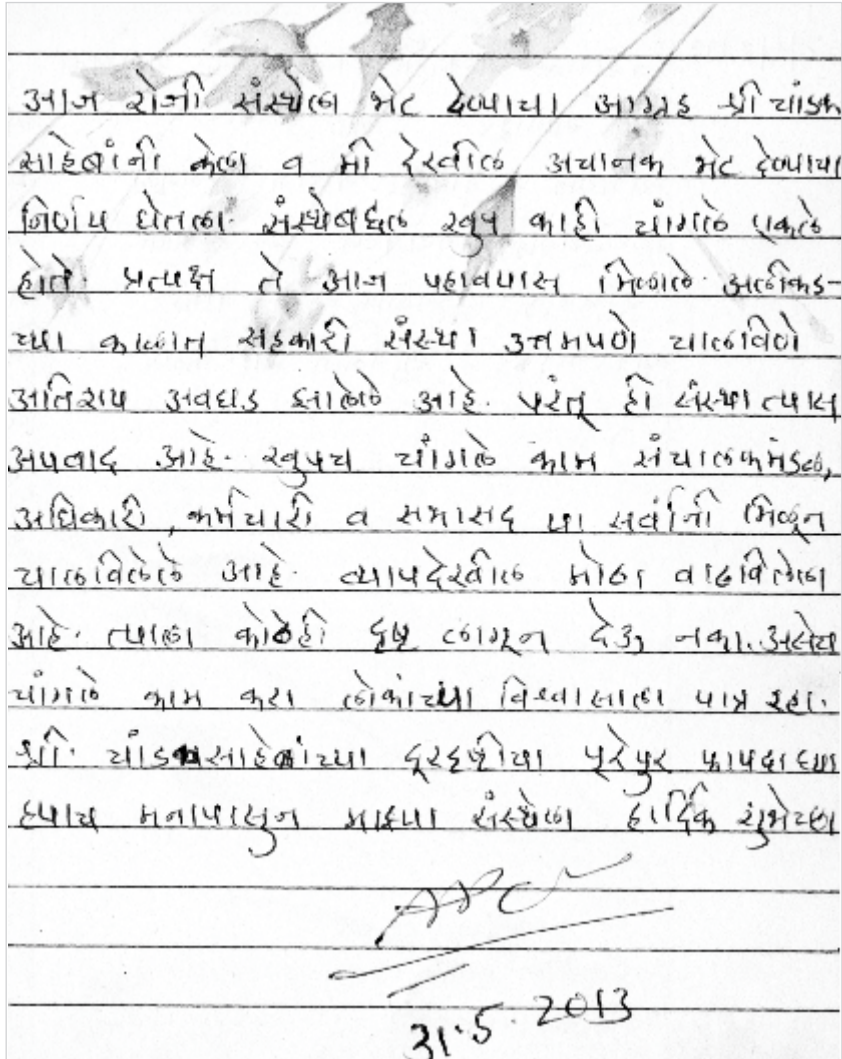 आज रोजी संस्थेला भेट देण्याचा आग्रह श्री चांडक
साहेबांनी केला व मी देखील अचानक भेट देण्याचा
निर्णय घेतला. संस्थेबद्दल खुप काही चांगले एकले
होते. प्रत्यक्ष ते आज पहावयास मिळाले. अलीकड-
च्या काळात सहकारी संस्था उत्तमपणे चालविणे
अतिशय अवघड झालेले आहे. परंतू ही संस्था त्यास
अपवाद आहे. खुपच चांगले काम संचालकमंडळ,
अधिकारी, कर्मचारी व सभासद या सर्वांनी मिळून
चालविलेले आहे. व्यापदेखील मोठा वाढविलेला
आहे. त्याला कोठेही दृष्ट लागून देऊ नका. असेच
चांगले काम करा लोकांच्या विश्वासाला पात्र रहा.
श्री. चांडकसाहेबांच्या दूरदृष्टीचा पूरेपुर फायदा घ्या
हयाच मनापासुन माझ्या संस्थेला हार्दिक शुभेच्छा
31.5.2013